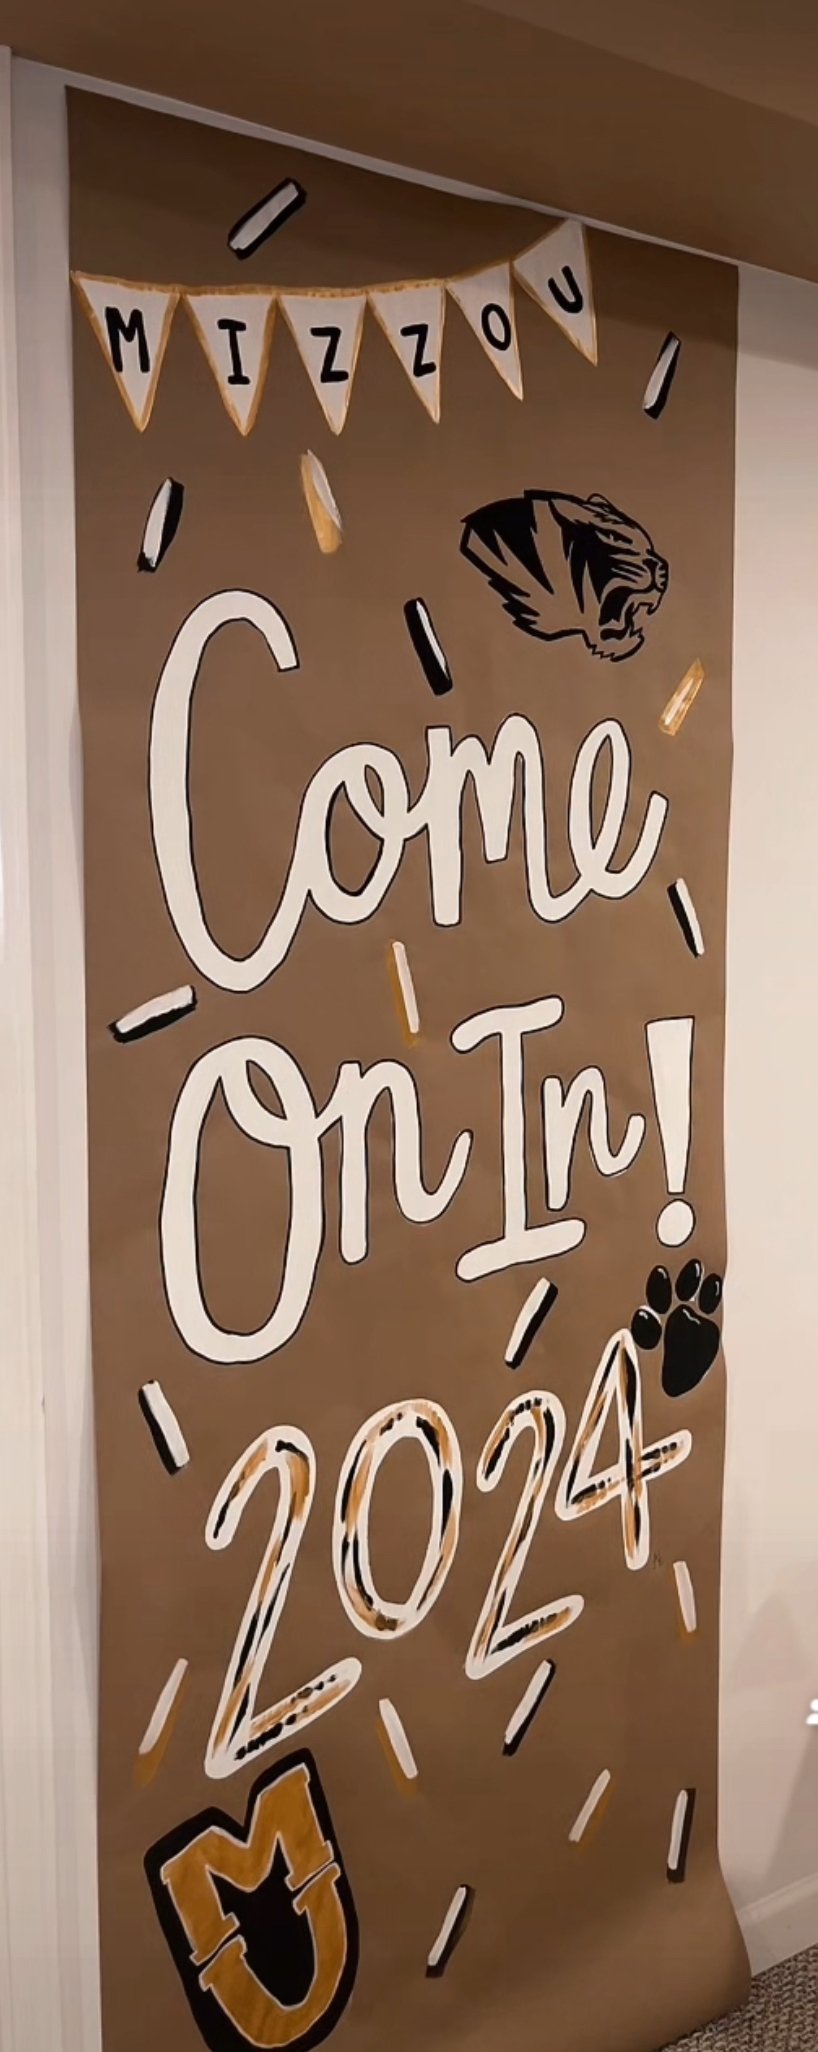 MIZZOU
Come
On In!
2024
MU